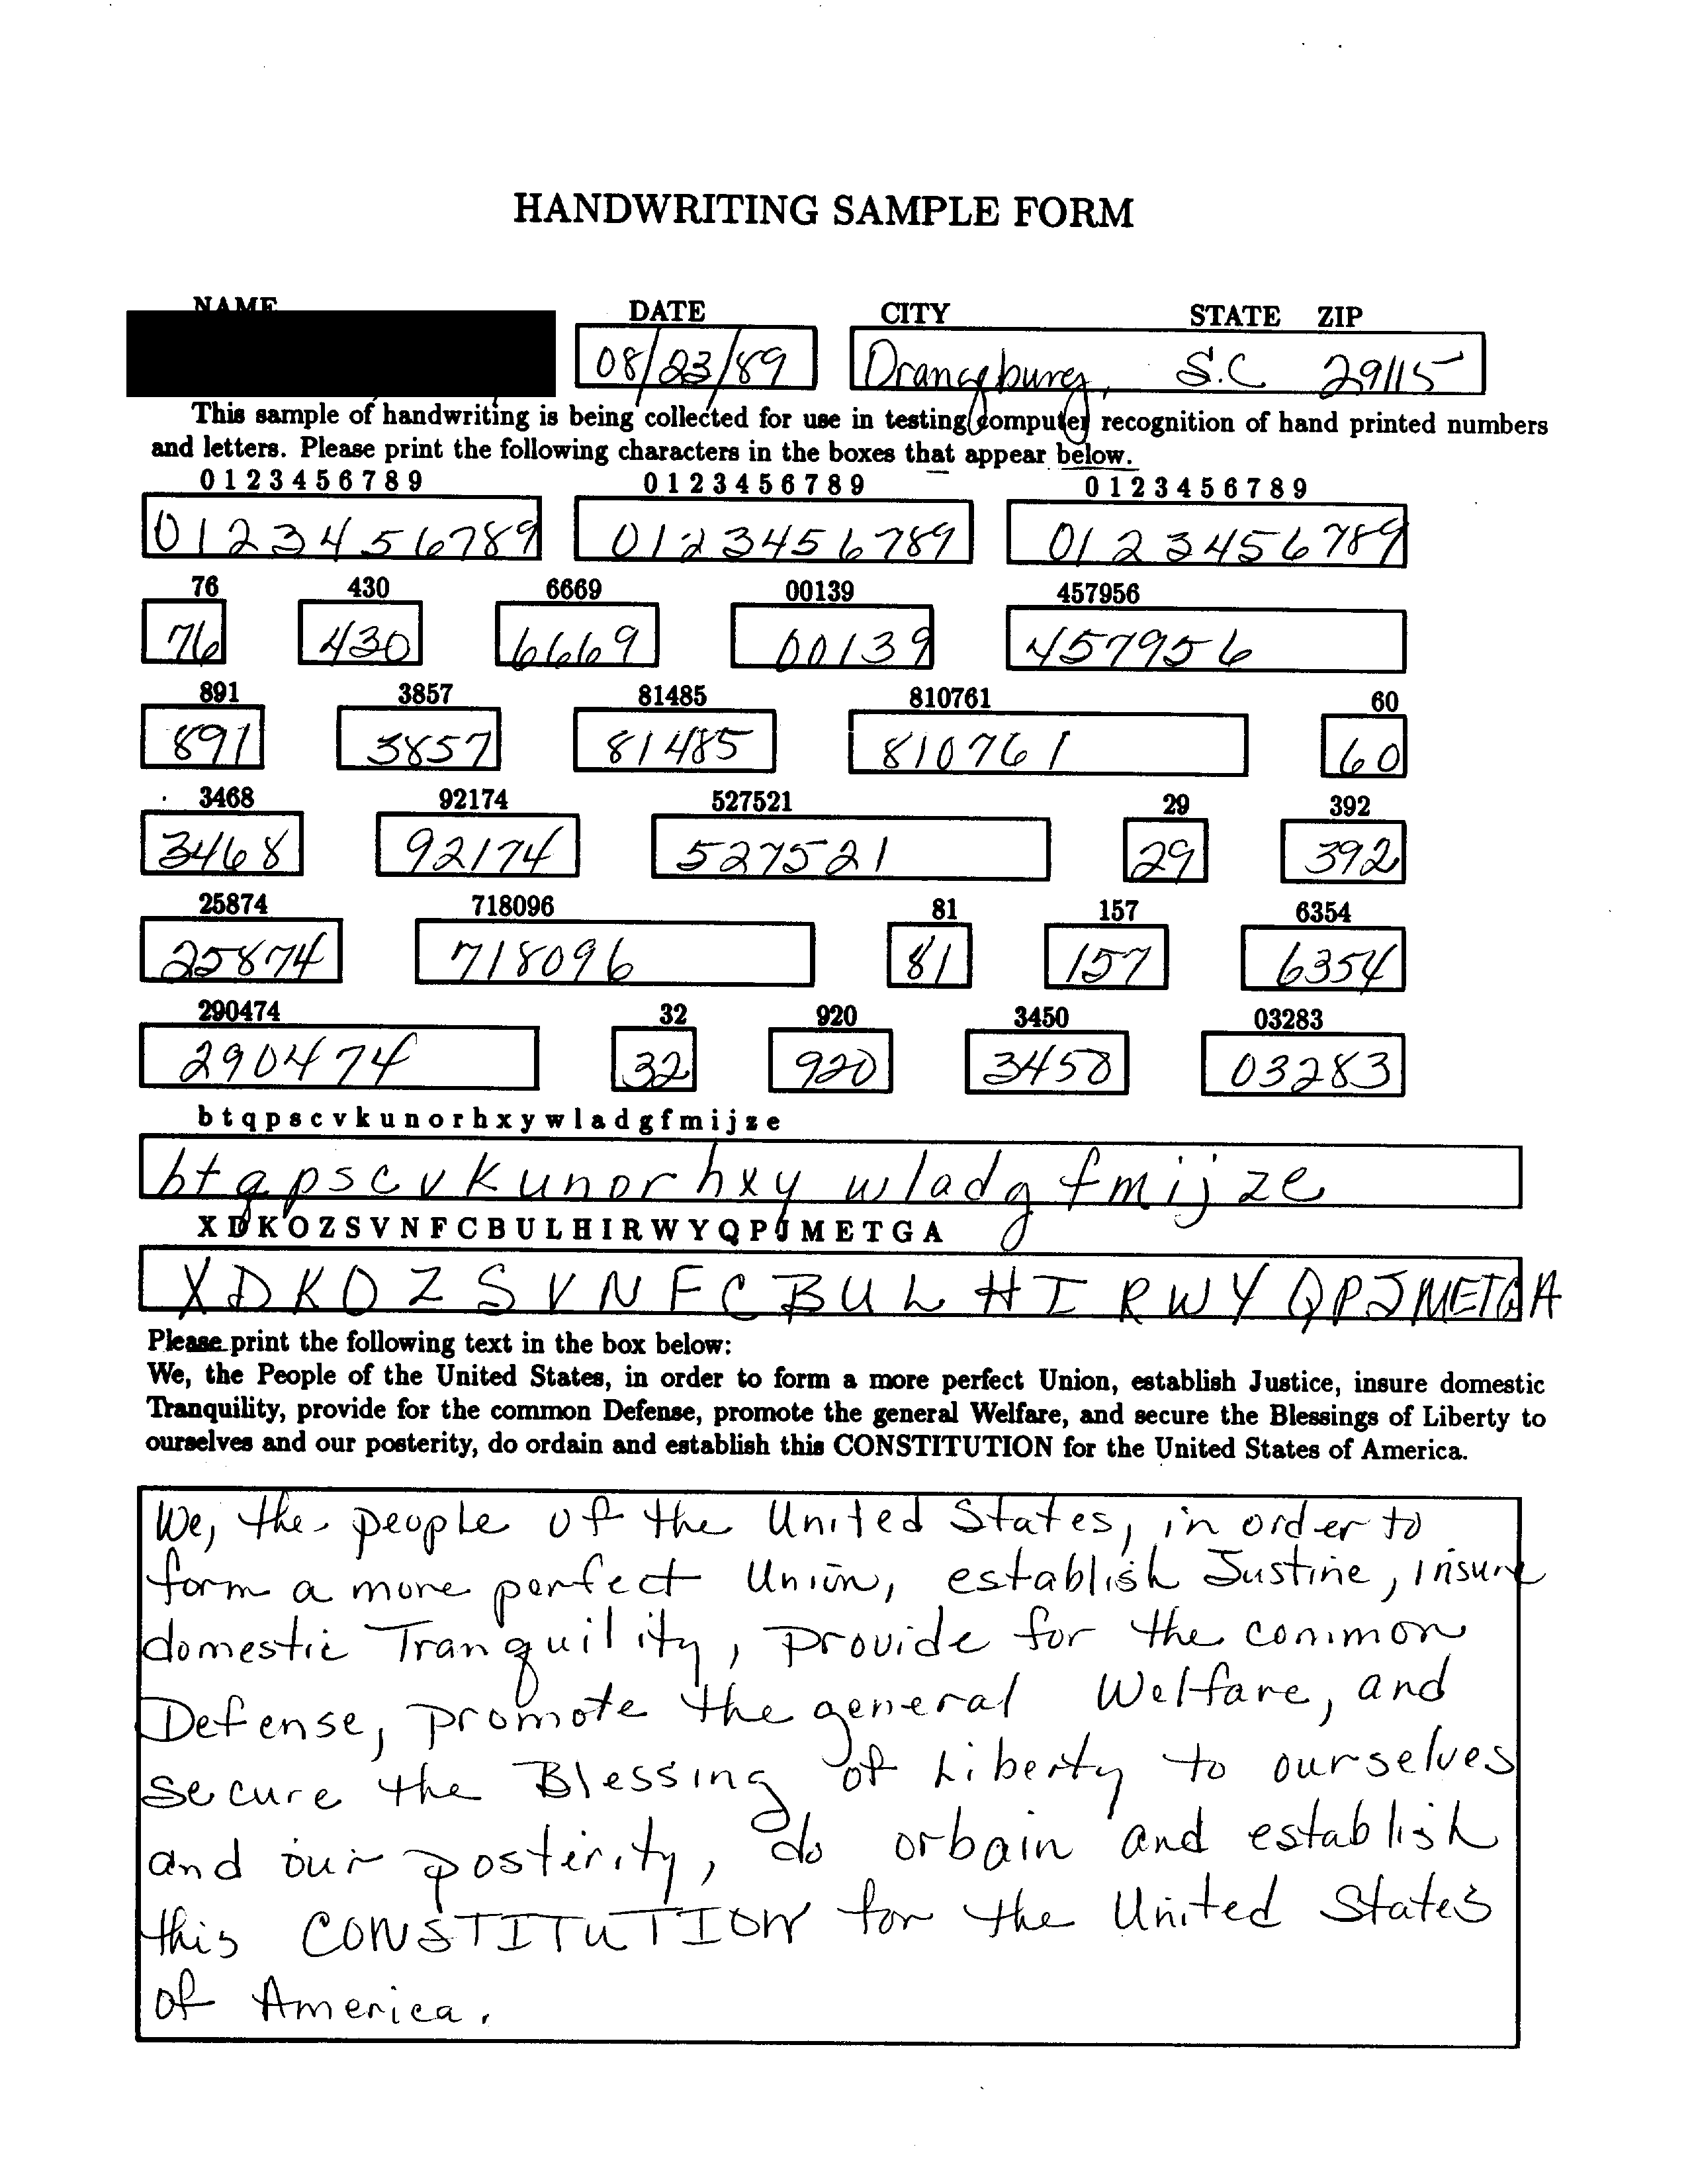 HANDWRITING SAMPLE FORM
NAME DATE CITY STATE ZIP
08/23/89 Orangeburg, S.C 29115
This sample of handwriting is being collected for use in testing computer recognition of hand printed numbers
and letters. Please print the following characters in the boxes that appear below.
0 1 2 3 4 5 6 7 8 9 0 1 2 3 4 5 6 7 8 9 0 1 2 3 4 5 6 7 8 9
0123456789 0123456789 0123456789
76 430 6669 00139 457956
76 430 6669 00139 457956
891 3857 81485 810761 60
891 3857 81485 810761 60
3468 92174 527521 29 392
3468 92174 527521 29 392
25874 718096 81 157 6354
25874 718096 81 157 6354
290474 32 920 3450 03283
290474 32 920 3450 03283
b t q p s c v k u n o r h x y w l a d g f m i j z e
b t q p s c v k u n o r h x y w l a d g f m i j z e
X D K O Z S V N F C B U L H I R W Y Q P J M E T G A
X D K O Z S V N F C B U L H I R W Y Q P J M E T G A
Please print the following text in the box below:
We, the People of the United States, in order to form a more perfect Union, establish Justice, insure domestic
Tranquility, provide for the common Defense, promote the general Welfare, and secure the Blessings of Liberty to
ourselves and our posterity, do ordain and establish this CONSTITUTION for the United States of America.
We, the people of the United States, in order to
form a more perfect Union, establish Justine, insure
domestic Tranquility, provide for the common
Defense, promote the general Welfare, and
secure the Blessing of Liberty to ourselves
and our posterity, do orbain and establish
this CONSTITUTION for the United States
of America.